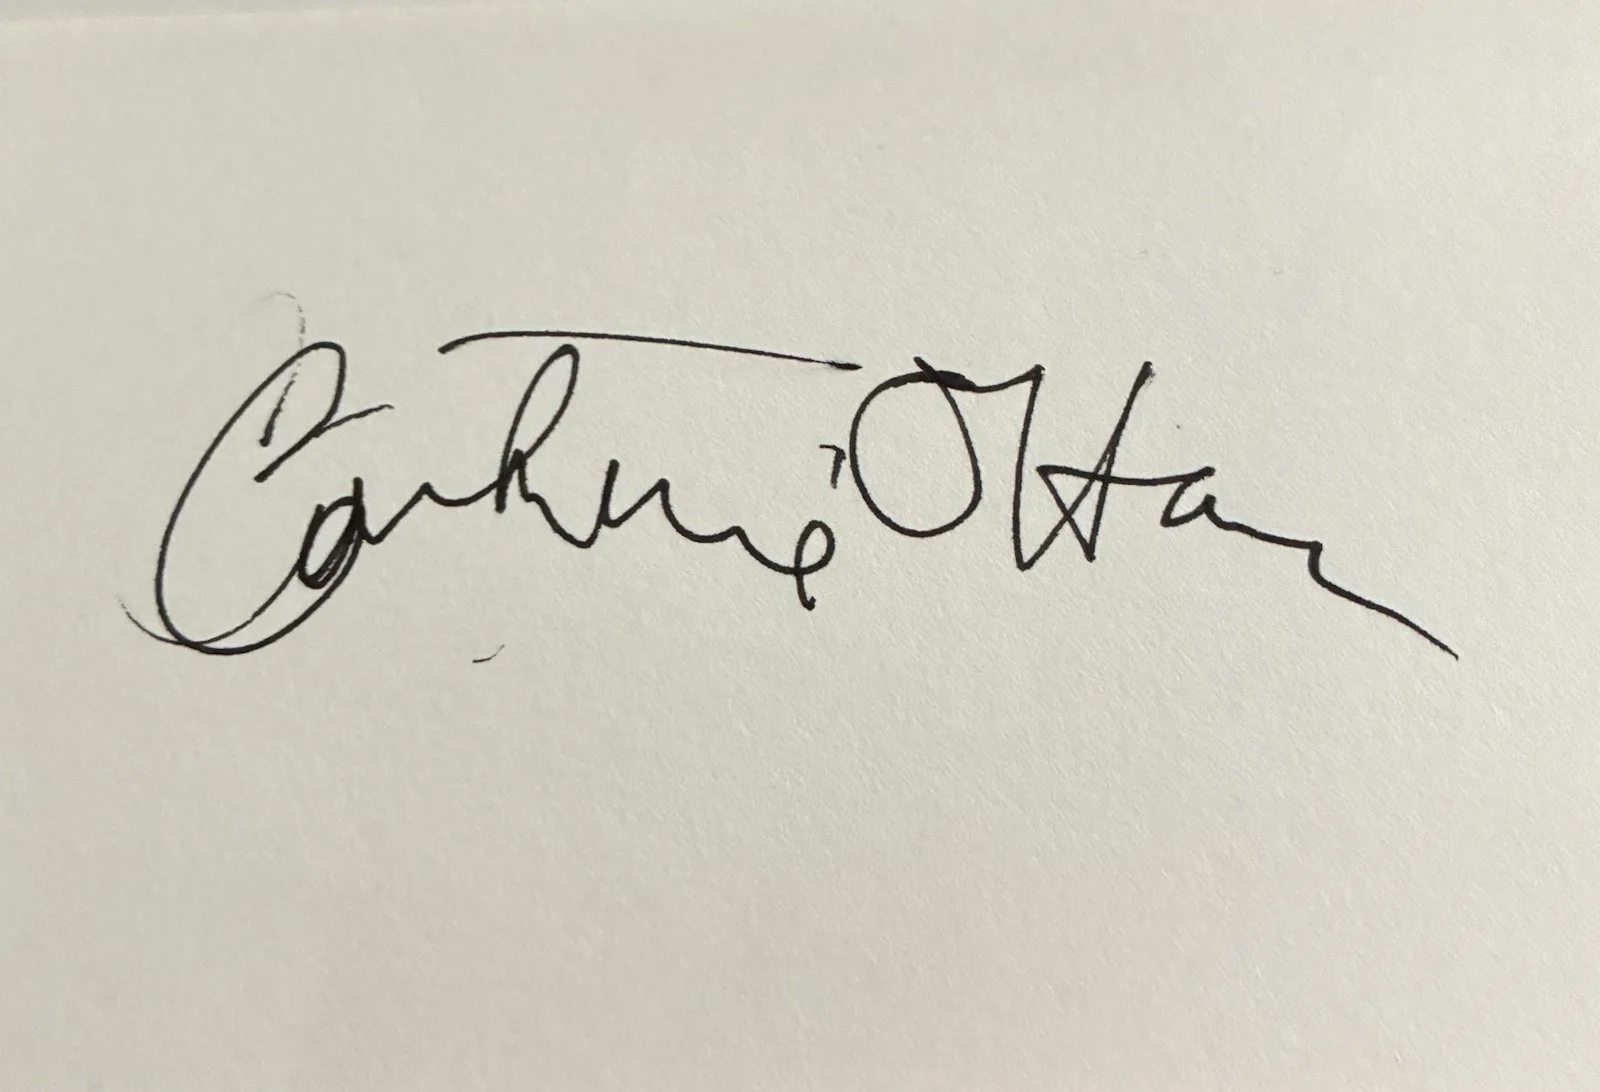 Catherine O'Hara